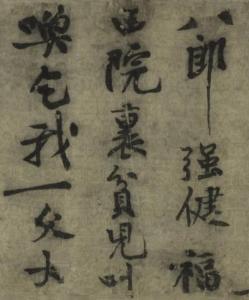 八郎強健福
田院裏貧兒叫
喚乞我一文大